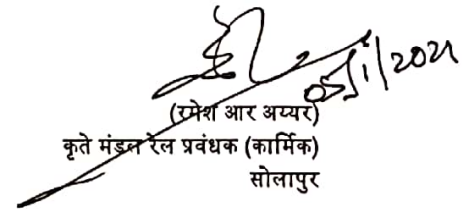 05/1/2021
(रमेश आर अय्यर)
कृते मंडल रेल प्रवंधक (कार्मिक)
सोलापुर